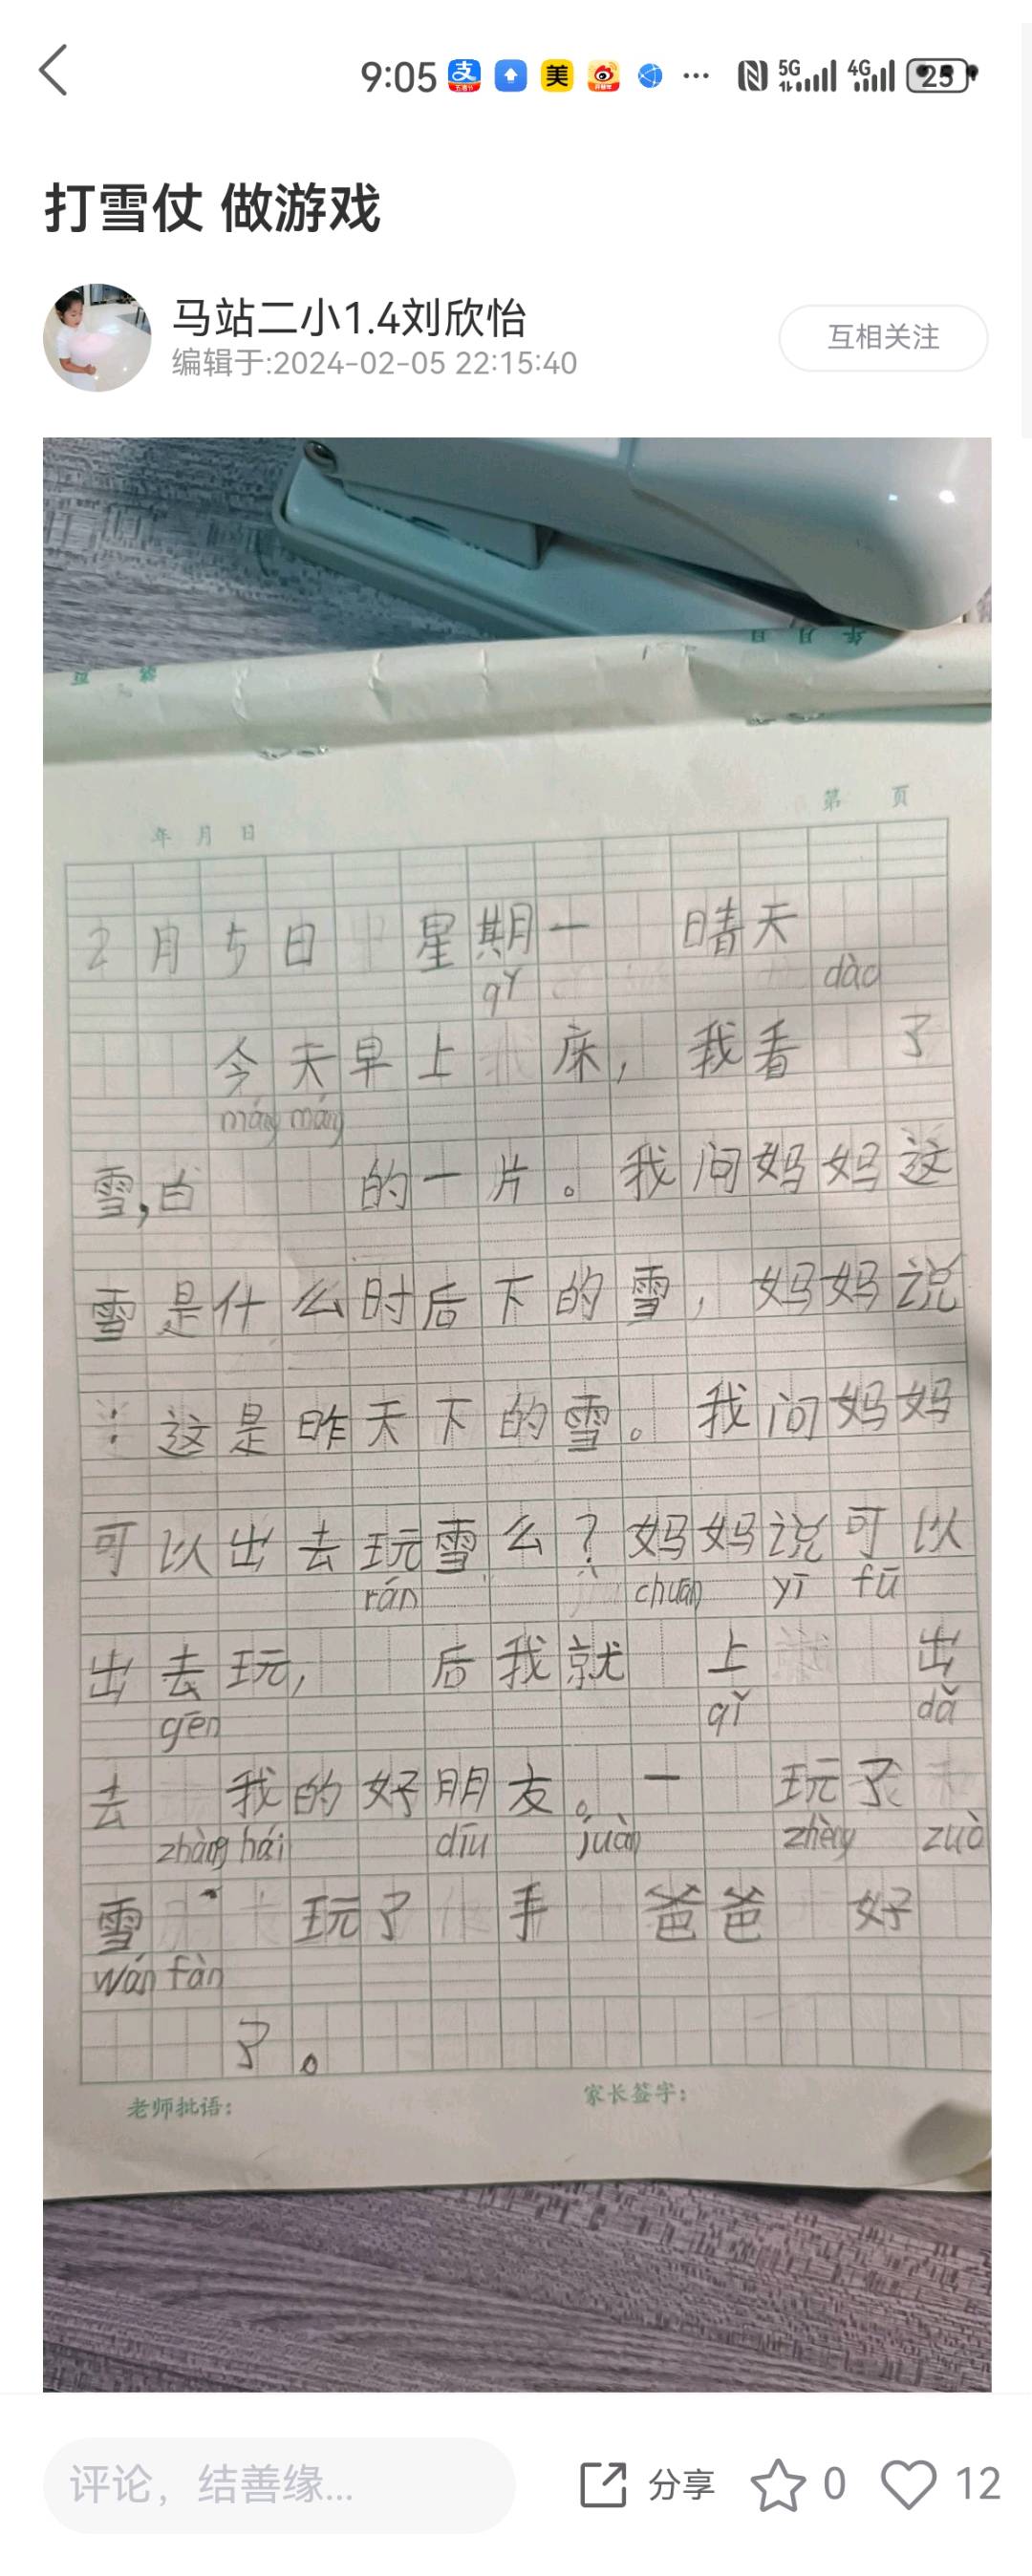 9:05 支 美 ··· 5G 4G 25
打雪仗 做游戏
马站二小1.4刘欣怡
编辑于:2024-02-05 22:15:40
互相关注
年 月 日
第 页
年 月 日
第 页
2月5日 星期一 晴天
qǐ dào
今天早上 床，我看 了
máng máng
雪，白 的一片。我问妈妈这
雪是什么时后下的雪，妈妈说
：这是昨天下的雪。我问妈妈
可以出去玩雪么？妈妈说可以
rán chuān yī fū
出去玩， 后我就 上 出
gēn qǐ dǎ
去 我的好朋友。一 玩了
zhàng hái diū juàn zhèng zuò
雪 玩了 手 爸爸 好
wán fàn
了。
老师批语：
家长签字：
评论，结善缘...
分享
0
12